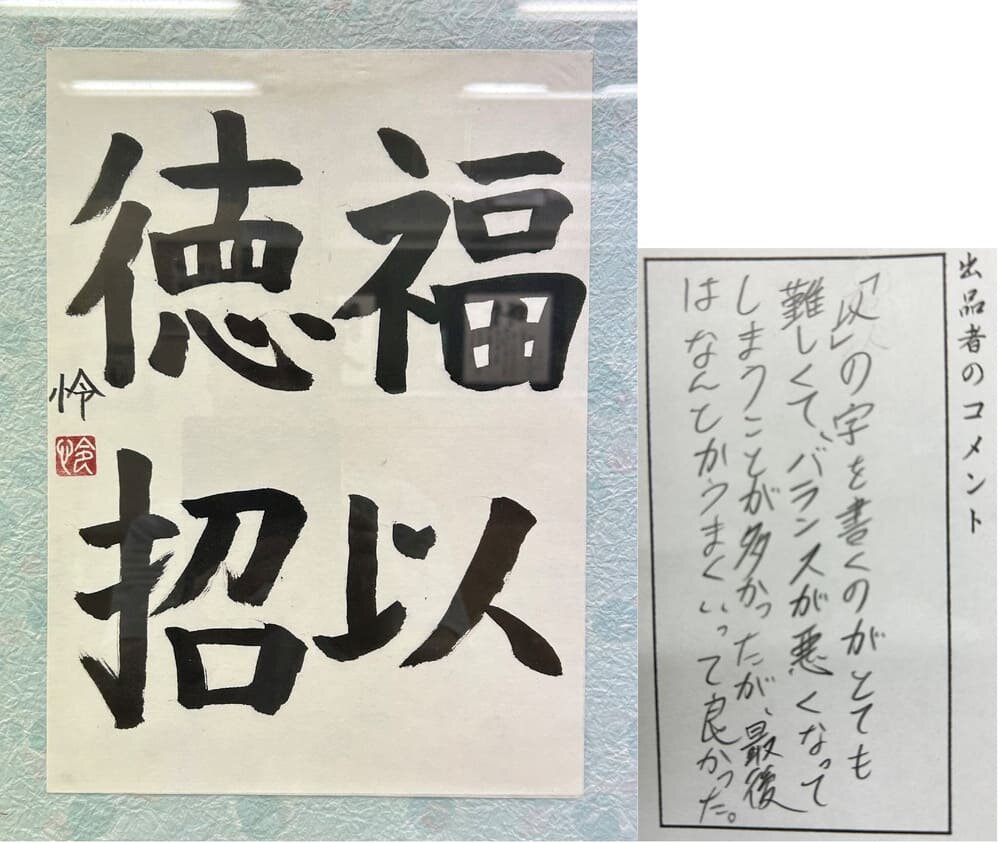 福以
徳招
怜
怜
出品者のコメント
「以」の字を書くのがとても
難しくて、バランスが悪くなって
しまうことが多かったが、最後
はなんとかうまくいって良かった。